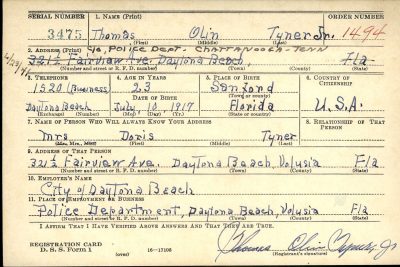 SERIAL NUMBER 1. NAME (Print) ORDER NUMBER
3475 Thomas Olin Tyner Jr. 1494
(First) (Middle) (Last)
2. ADDRESS (Print) c/o Police Dept - Chattanooga - Tenn
321½ Fairview Ave. Daytona Beach, Fla
(Number and street or R. F. D. number) (Town) (County) (State)
3. TELEPHONE 4. AGE IN YEARS 5. PLACE OF BIRTH 6. COUNTRY OF CITIZENSHIP
1520 (Business) 23 Sanford
DATE OF BIRTH (Town or county)
Daytona Beach July 10 1917 Florida U.S.A.
(Exchange) (Number) (Mo.) (Day) (Yr.) (State or country)
7. NAME OF PERSON WHO WILL ALWAYS KNOW YOUR ADDRESS 8. RELATIONSHIP OF THAT PERSON
Mrs Doris Tyner
(Mr., Mrs., Miss) (First) (Middle) (Last)
9. ADDRESS OF THAT PERSON
321½ Fairview Ave. Daytona Beach, Volusia Fla
(Number and street or R. F. D. number) (Town) (County) (State)
10. EMPLOYER'S NAME
City of Daytona Beach
11. PLACE OF EMPLOYMENT OR BUSINESS
Police Department, Daytona Beach, Volusia Fla
(Number and street or R. F. D. number) (Town) (County) (State)
I AFFIRM THAT I HAVE VERIFIED ABOVE ANSWERS AND THAT THEY ARE TRUE.
REGISTRATION CARD
D. S. S. Form 1 (over) 16-17105 Thomas Olin Tyner Jr